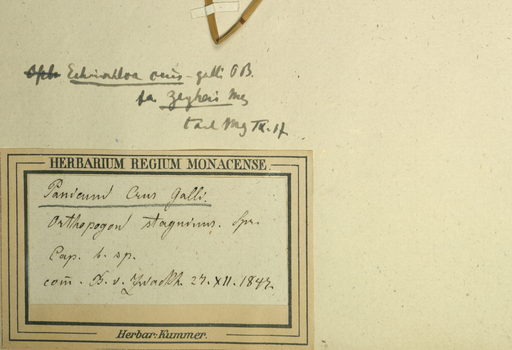 Echinochloa crus-galli P B.
fa Zeyheri Mez
Mez IX.17
HERBARIUM REGIUM MONACENSE.
Panicum Crus Galli.
Orthopogon stagninus. Spr.
Cap. b. sp.
com. B. v. Zwackh. 27. XII. 1847.
Herbar: Kummer.